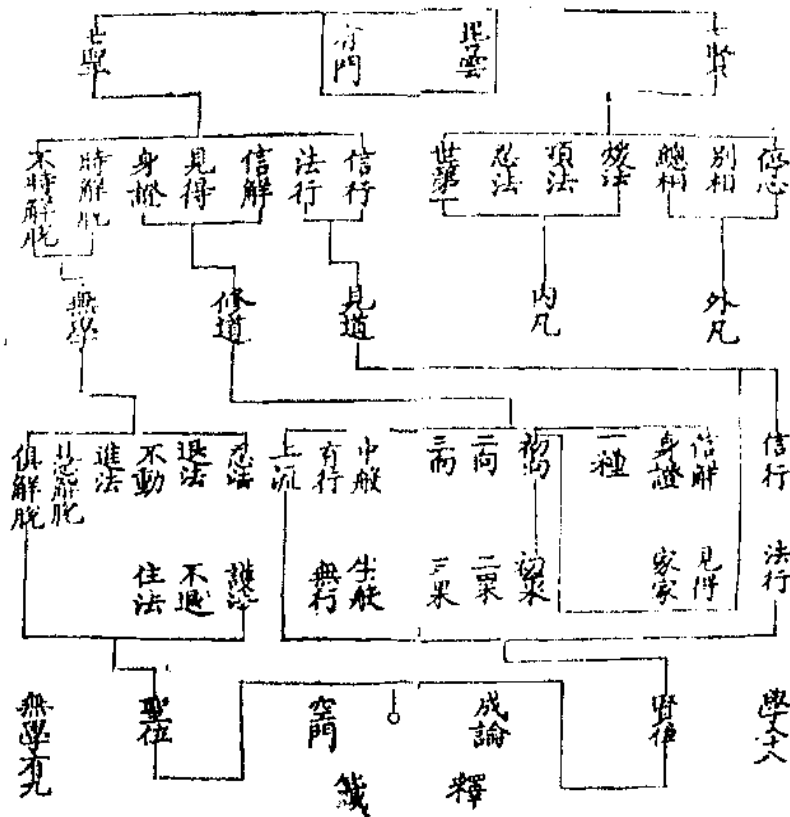 七賢
毘曇
有門
七聖
信心
別相
總相
煖法
頂法
忍法
世第一
信行
法行
信解
見得
身證
時解脫
不時解脫
外凡
內凡
見道
修道
無學
信行 法行
信解 見得
身證 家家
一種
初向 初果
二向 二果
三向 三果
中般 生般
有行 無行
上流
忍法 護法
退法 不退
不動 住法
進法
慧解脫
俱解脫
學人十八
賢位
成論
空門
聖位
無學有九
釋籤